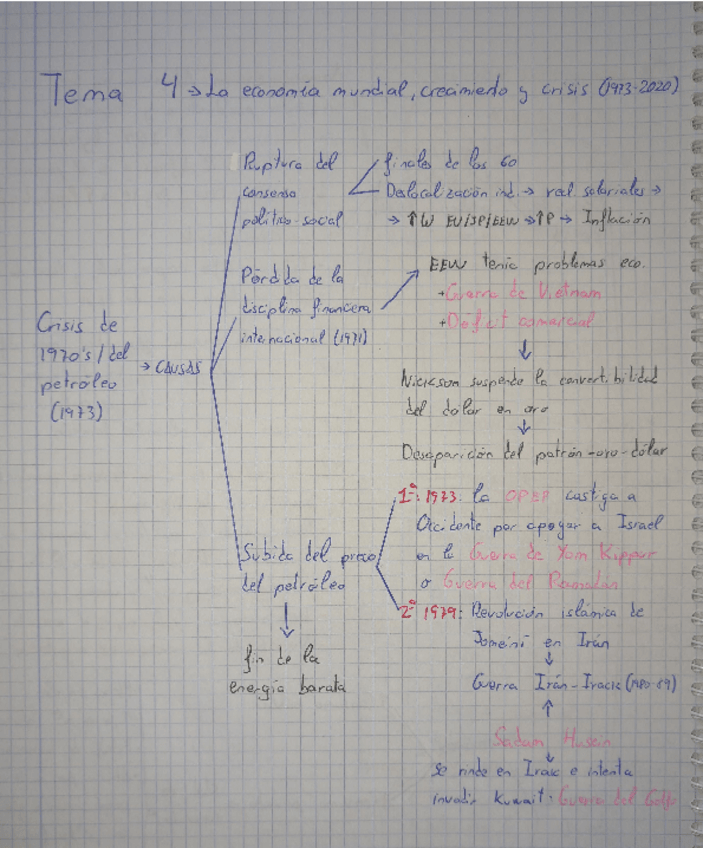 Tema 4 → La economía mundial, crecimiento y crisis (1973-2020)
Crisis de
1970's / del
petróleo
(1973)
→ CAUSAS
Ruptura del
consenso
político-social
finales de los 60
Deslocalización ind. → red. salariales →
→ ↑W EU/JP/EEUU → ↑P → Inflación
Pérdida de la
disciplina financiera
internacional (1971)
EEUU tenía problemas eco.
+ Guerra de Vietnam
+ Déficit comercial
↓
Nickson suspende la convertibilidad
del dólar en oro
↓
Desaparición del patrón-oro-dólar
Subida del precio
del petróleo
↓
fin de la
energía barata
1º: 1973: la OPEP castiga a
Occidente por apoyar a Israel
en la Guerra de Yom Kippur
o Guerra del Ramadan
2º 1979: Revolución islámica de
Jomeini en Irán
↓
Guerra Irán-Irack (1980-89)
↑
Sadam Husein
↓
se rinde en Irak e intenta
invadir Kuwait. Guerra del Golfo